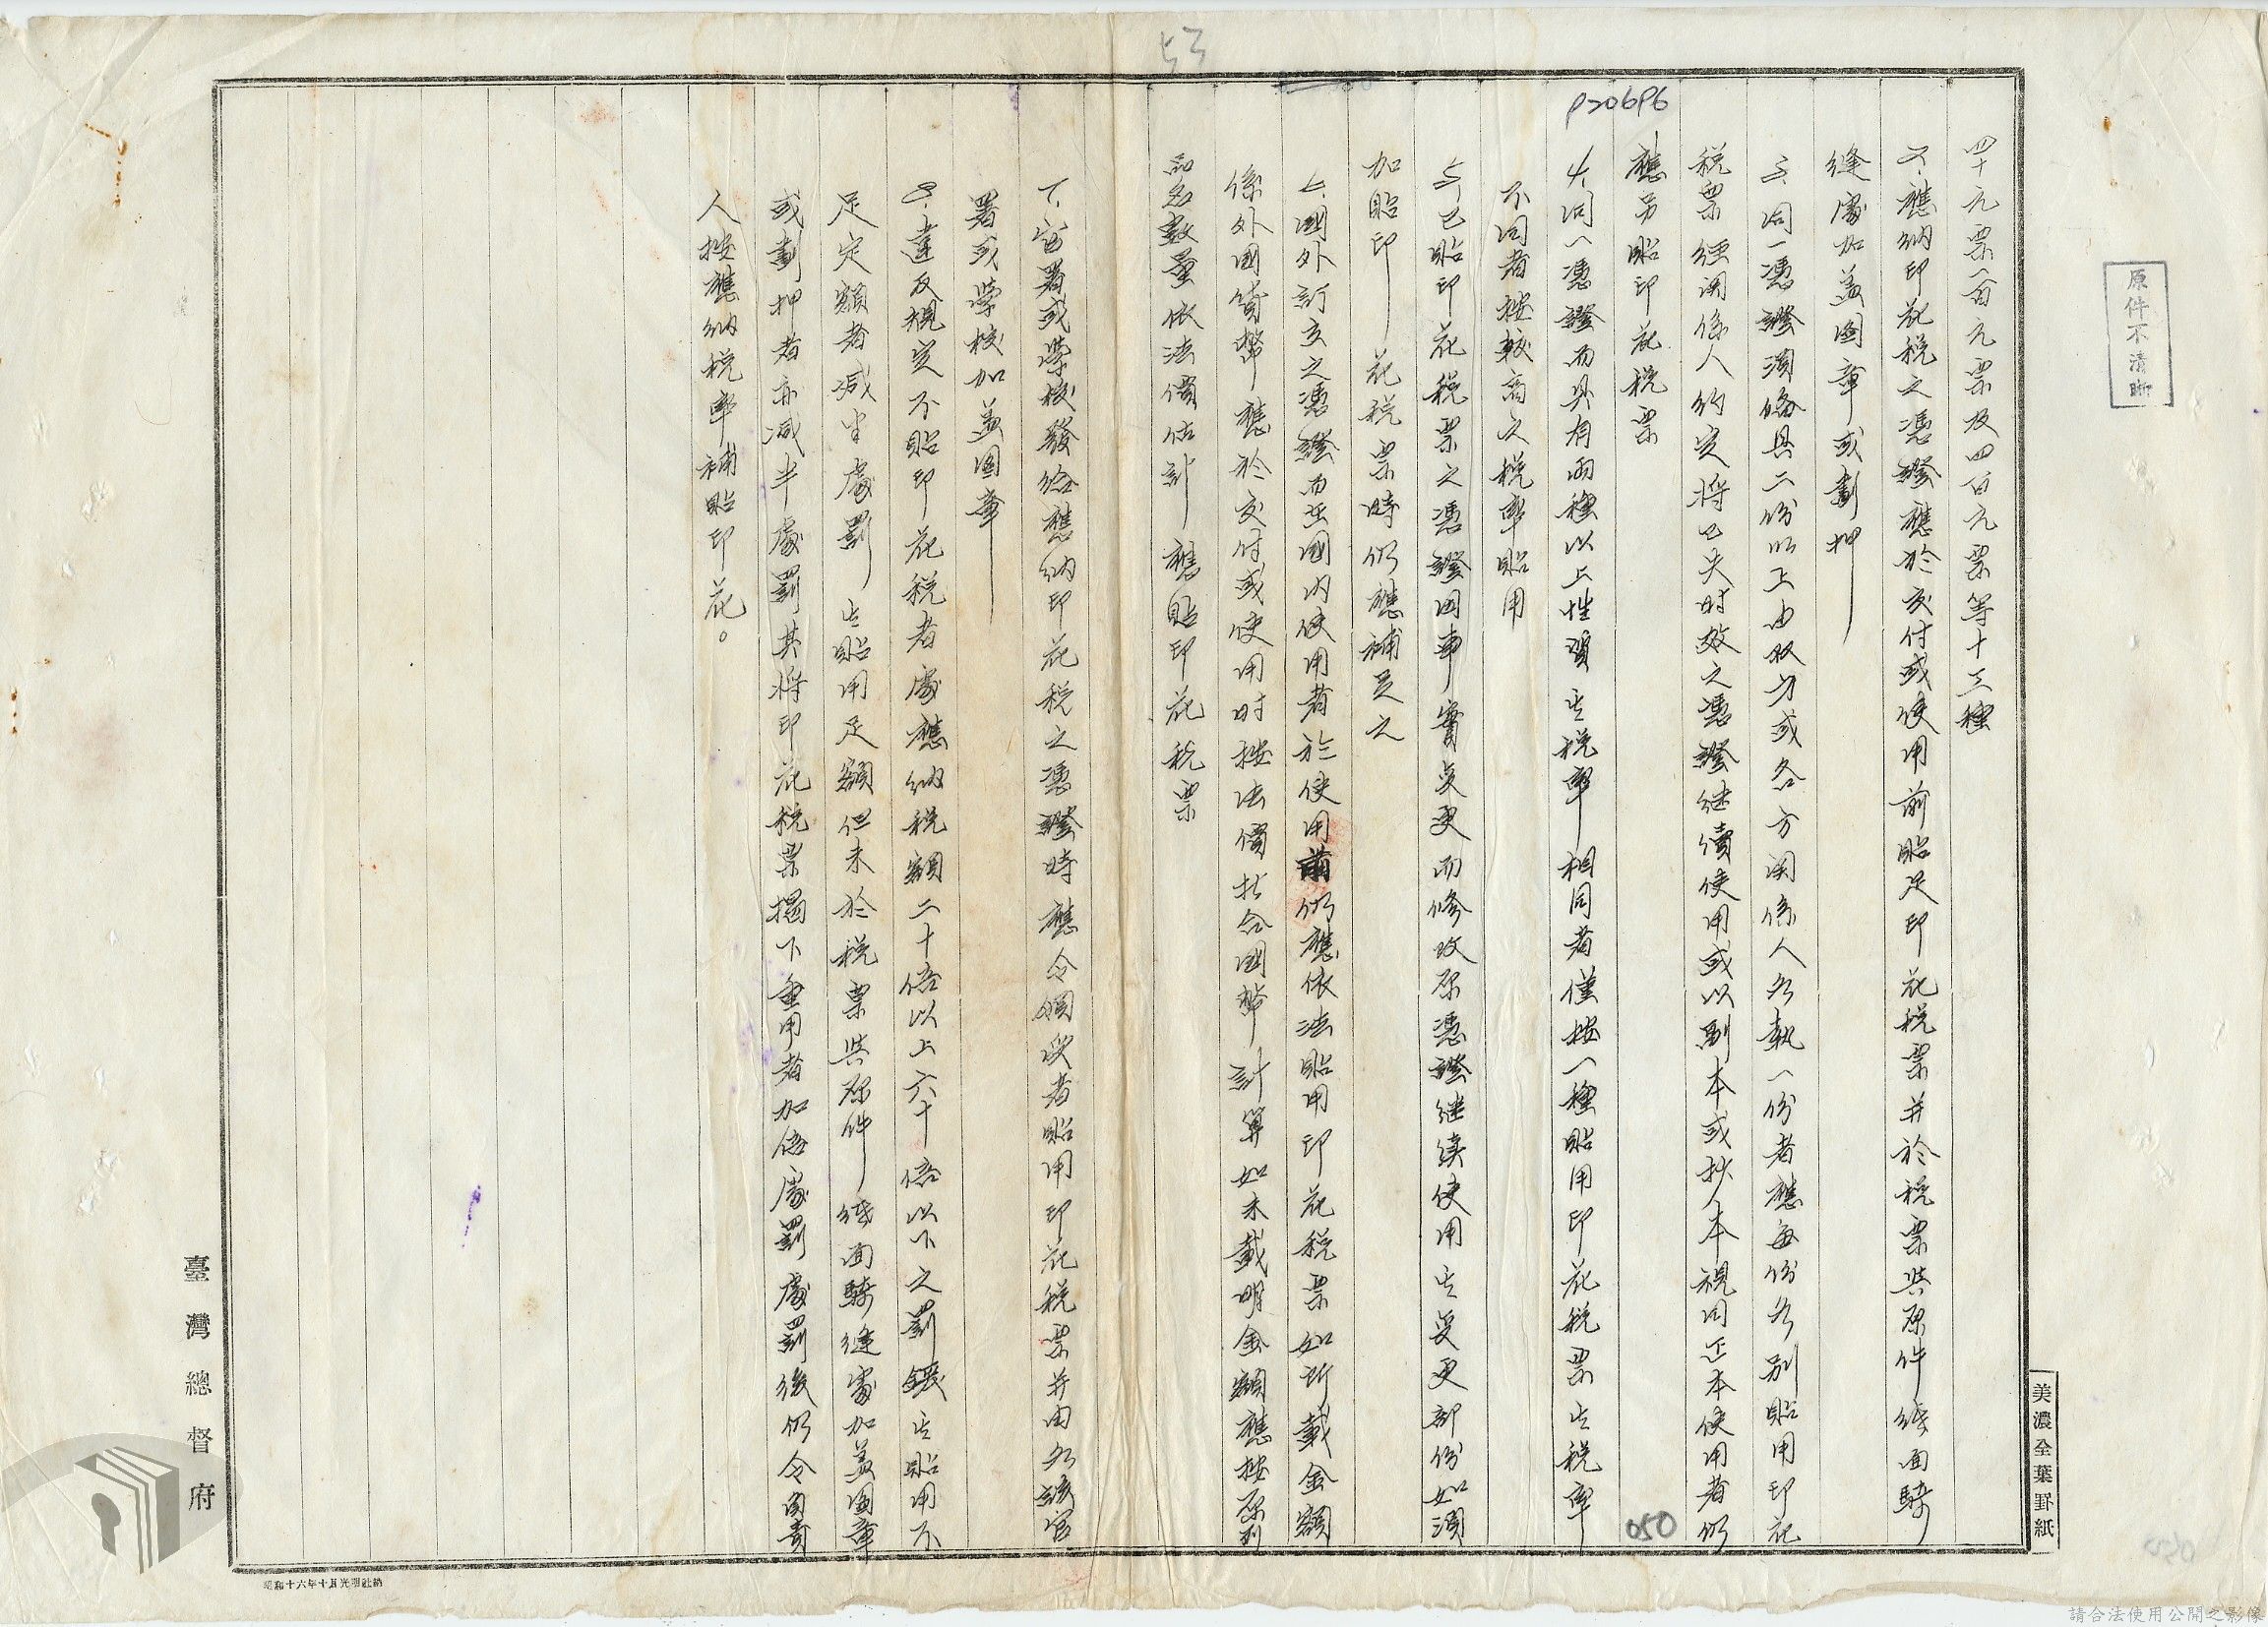 53
P20696
原件不清晰
四十元票一百元票及四百元票等十三種
2.應納印花税之憑證應於交付或使用前貼足印花税票并於税票與原件紙面騎
縫處加盖圖章或劃押
3.同一憑證須備具二份以上由双方或各方関係人各執一份者應每份各別貼用印花
税票經関係人約定将已失时效之憑證继續使用或以副本或抄本視同正本使用者仍
應另貼印花税票
4.同一憑證而具有兩種以上性質其税率相同者僅按一種貼用印花税票其税率
不同者按較高之税率貼用
5.已貼印花税票之憑證因事實変更而修改原憑證继续使用其変更部份如須
加貼印花税票時仍應補足之
6.國外訂立之憑證而在國内使用者於使用前仍應依法貼用印花税票如所載金額
係外國貨幣應於交付或使用时按法價折合國幣計算如未載明金額應按原列
品名數量依法價估計應貼印花税票
7.官署或學校發給應納印花税之憑證時應令領受者貼用印花税票并由各該官
署或學校加盖圖章
8.違反規定不貼印花税者處應納税額二十倍以上六十倍以下之罰鍰其貼用不
足定額者减半處罰其貼用足額但未於税票與原件紙面騎縫處加盖圖章
或劃押者亦减半處罰其将印花税票揭下重用者加倍處罰處罰後仍令負責
人按應納税率補貼印花。
050
美濃全葉罫紙
臺灣總督府
昭和十六年十月光明社納
請合法使用公開之影像